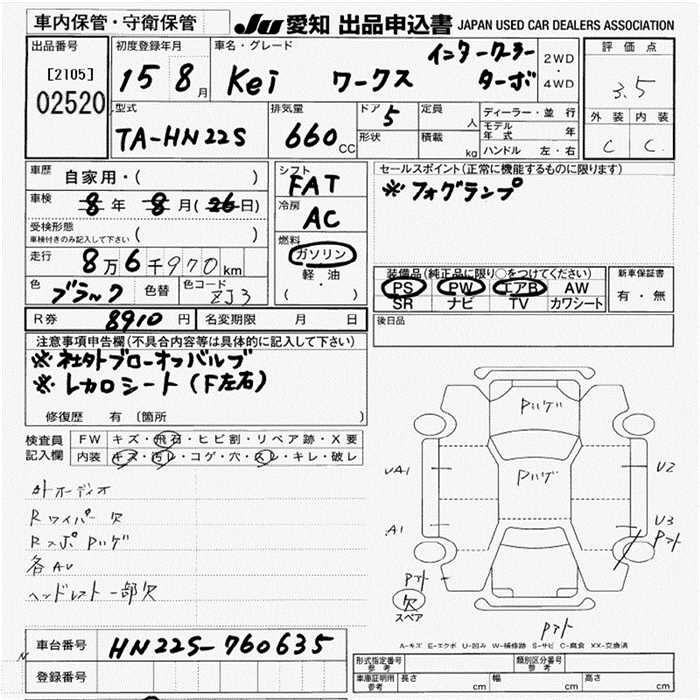 車内保管・守衛保管
JU 愛知 出品申込書 JAPAN USED CAR DEALERS ASSOCIATION
出品番号
[2105]
02520
初度登録年月
15 8月
車名・グレード
Kei ワークス インタークーラー ターボ
2WD
・
4WD
評価点
3.5
外装 内装
C C
型式
TA-HN22S
排気量
660 CC
ドア 5
形状
定員 人
積載 kg
ディーラー・並行
モデル年式 年
ハンドル 左・右
車歴 自家用・( )
車検 8年 8月(26日)
受検形態
車検付きのみ記入して下さい ( )
走行 8万6千970km
色 ブラック 色替 色コード ZJ3
シフト
FAT
冷房
AC
燃料
ガソリン
軽・油
( )
セールスポイント(正常に機能するものに限ります)
※フォグランプ
装備品(純正品に限り○をつけてください)
PS PW エアB AW
SR ナビ TV カワシート
新車保証書
有・無
R券 8910円 名変期限 月 日
後日品
注意事項申告欄(不具合内容等は具体的に記入して下さい)
※社外ブローオフバルブ
※レカロシート(F左右)
修復歴 有 〔箇所 〕
検査員記入欄
FW キズ・飛石・ヒビ割・リペア跡・X要
内装 キズ・汚レ・コゲ・穴・スレ・キレ・破レ
外オーディオ
Rワイパー欠
RスポPハゲ
各AU
ヘッドレスト一部欠
Pハゲ
Pハゲ
UA1
U2
A1
U3
Pマト
Pマト
欠
スペア
Pマト
A-キズ E-エクボ U-凹み W-補修跡 S-サビ C-腐食 XX-交換済
車台番号 HN22S-760635
登録番号
形式指定番号 参考
類別区分番号 参考
車庫証明用 参考
長さ cm 幅 cm 高さ cm